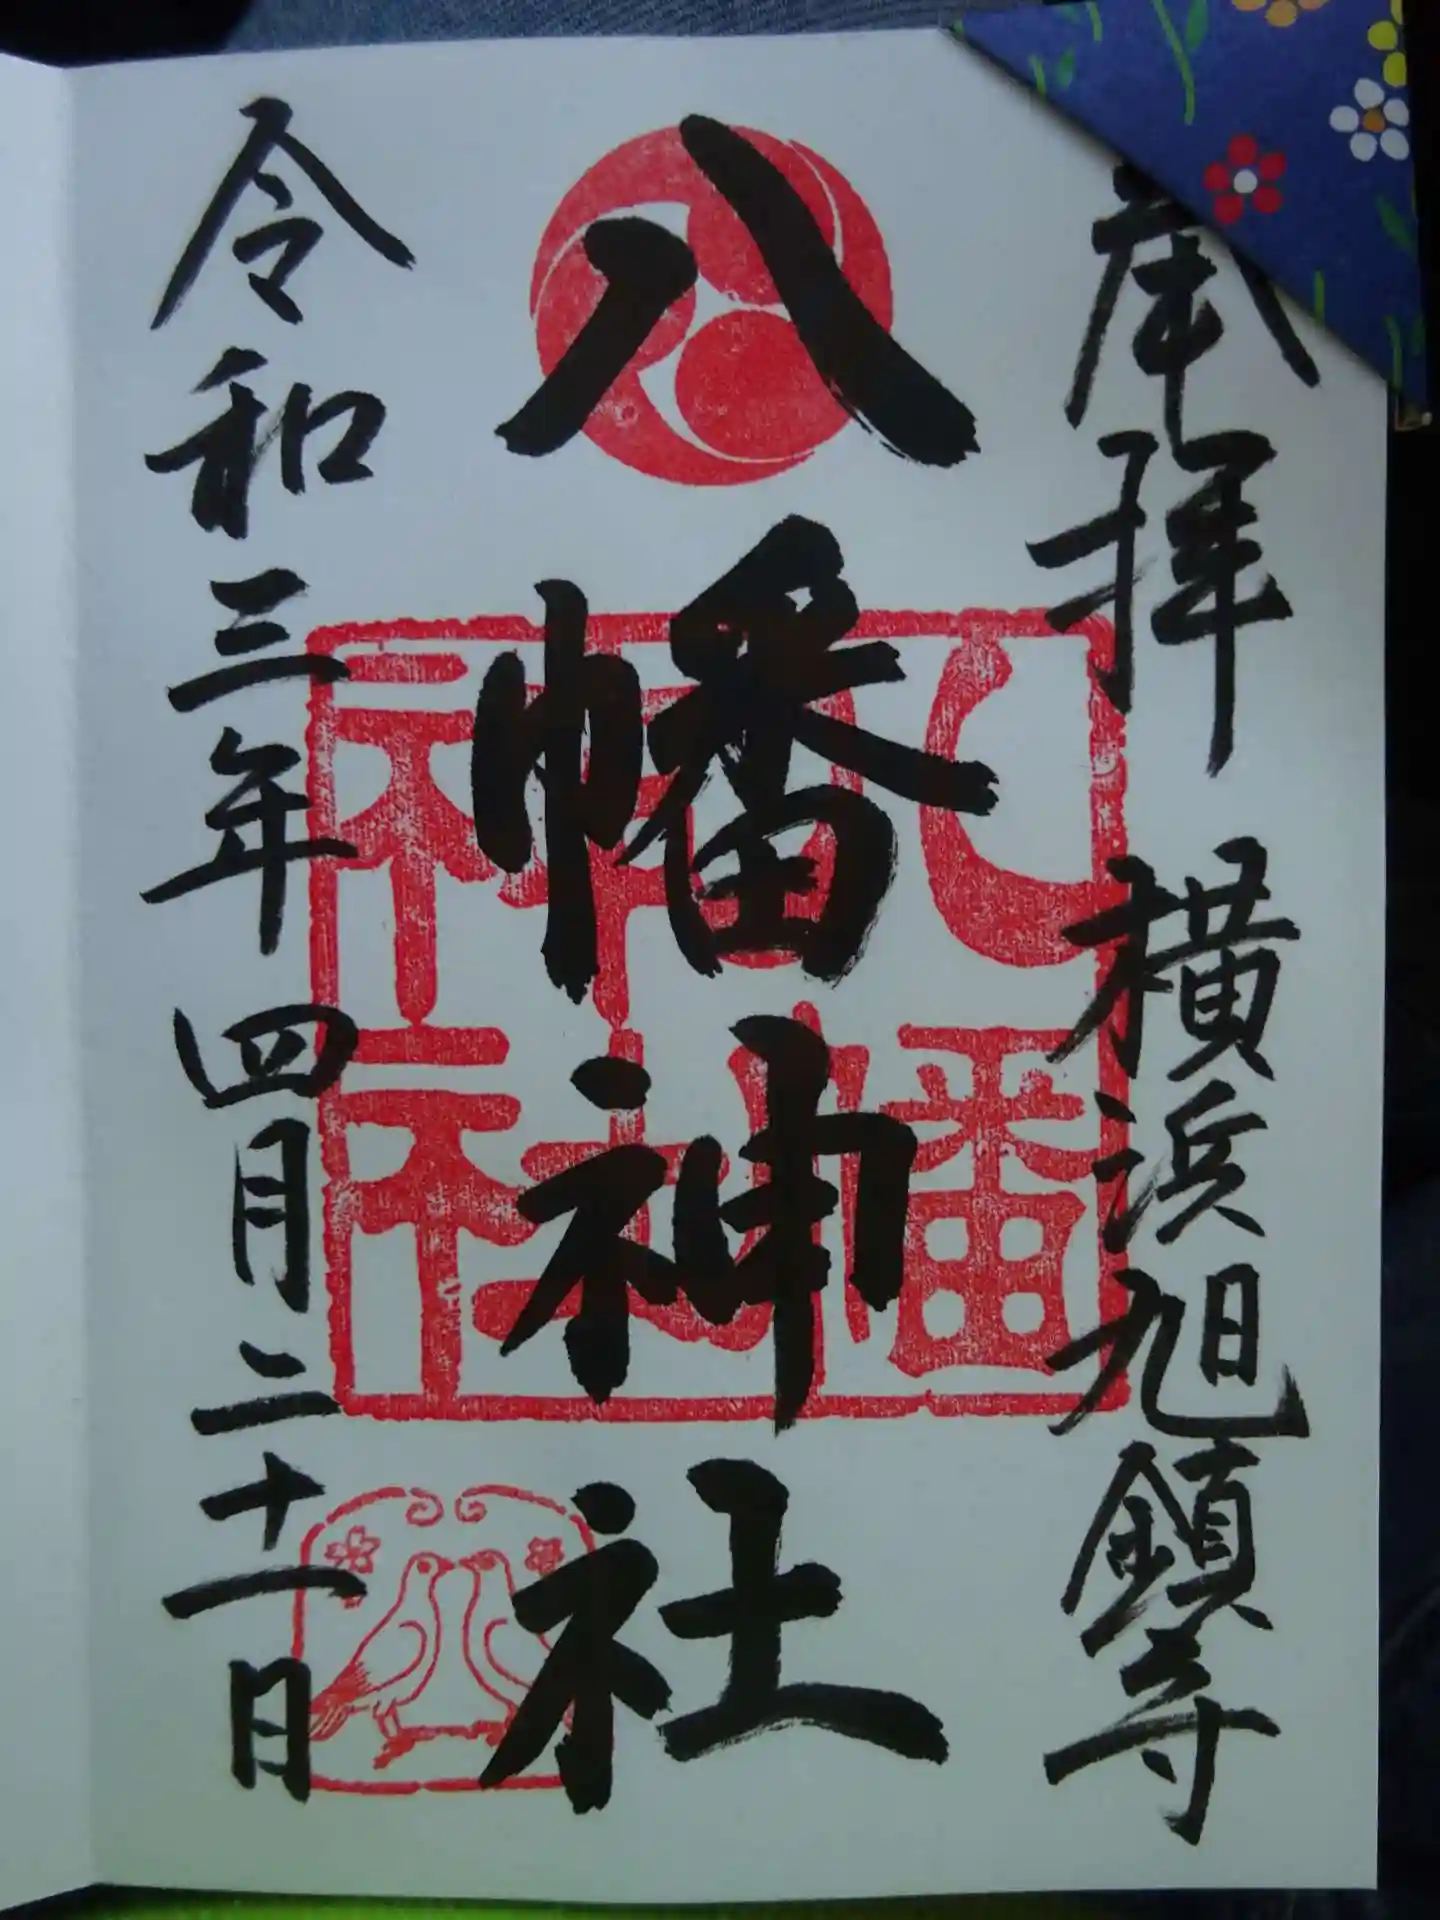 奉拝 横浜旭鎮守
八幡神社
令和三年四月二十一日
八幡
神社